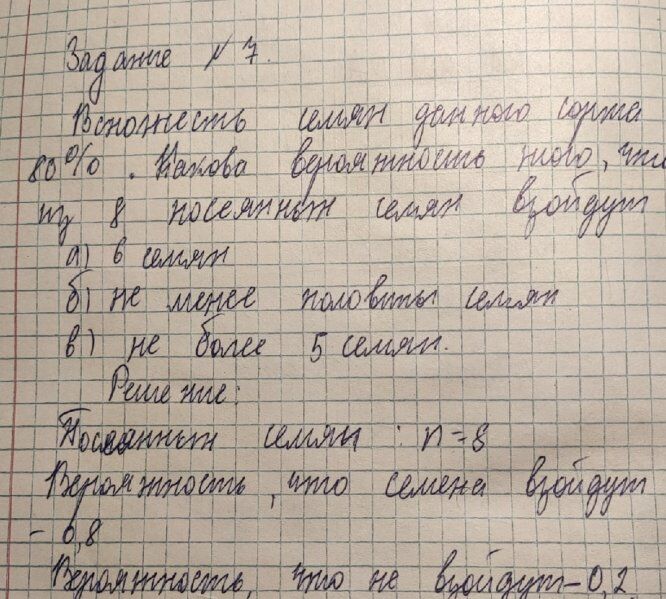 Задание № 7.
Всхожесть семян данного сорта
80% . Какова вероятность того, что
из 8 посеянных семян взойдут
а) 6 семян
б) не менее половины семян
в) не более 5 семян.
Решение:
Посеянных семян : n = 8
Вероятность, что семена взойдут
- 0,8
Вероятность, что не взойдут - 0,2